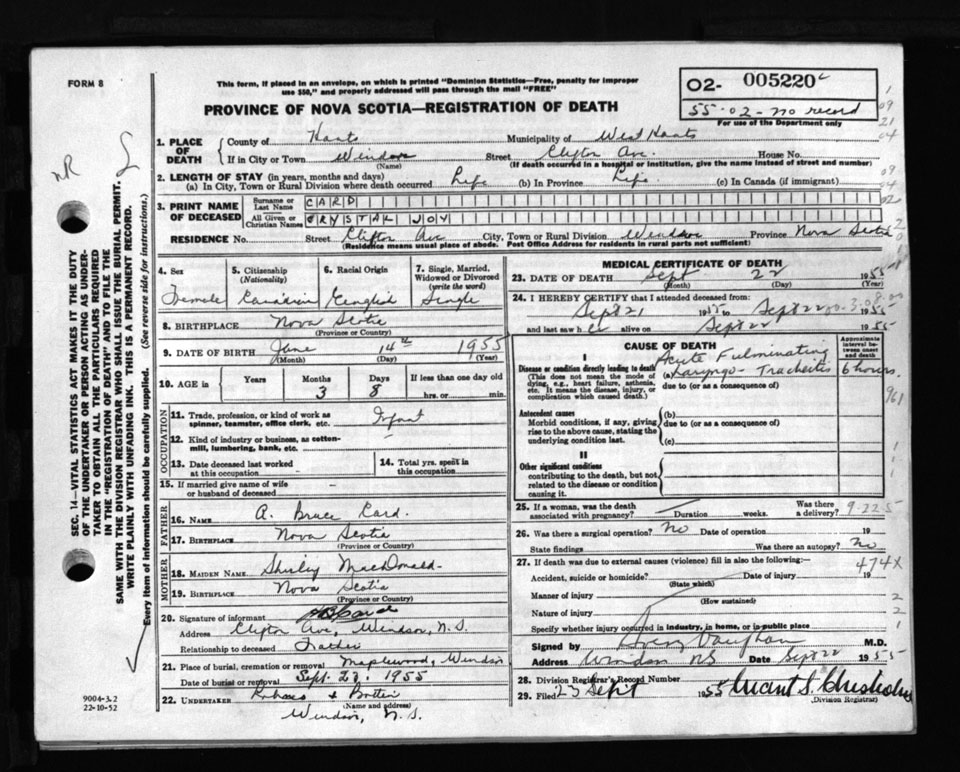 FORM 8
This form, if placed in an envelope, on which is printed "Dominion Statistics—Free, penalty for improper
use $50," and properly addressed will pass through the mail "FREE"
PROVINCE OF NOVA SCOTIA—REGISTRATION OF DEATH
O2- 005220 c
55-02-no record
For use of the Department only
1. PLACE OF DEATH
County of Hants Municipality of West Hants
If in City or Town Windsor Street Clifton Ave. House No.
(Name) (If death occurred in a hospital or institution, give the name instead of street and number)
2. LENGTH OF STAY (in years, months and days)
(a) In City, Town or Rural Division where death occurred Life (b) In Province Life. (c) In Canada (if immigrant)
3. PRINT NAME OF DECEASED
Surname or Last Name CARD
All Given or Christian Names CRYSTAL JOY
RESIDENCE No. Street Clifton Ave City, Town or Rural Division Windsor Province Nova Scotia
(Residence means usual place of abode. Post Office Address for residents in rural parts not sufficient)
4. Sex
Female
5. Citizenship
(Nationality)
Canadian
6. Racial Origin
English
7. Single, Married, Widowed or Divorced
(write the word)
Single
8. BIRTHPLACE Nova Scotia
(Province or Country)
9. DATE OF BIRTH June 14th 1955
(Month) (Day) (Year)
10. AGE in Years Months Days If less than one day old
3 8 hrs. or min.
OCCUPATION
11. Trade, profession, or kind of work as spinner, teamster, office clerk, etc. Infant
12. Kind of industry or business, as cotton-mill, lumbering, bank, etc. —
13. Date deceased last worked at this occupation
14. Total yrs. spent in this occupation
15. If married give name of wife or husband of deceased
FATHER
16. NAME A. Bruce Card.
17. BIRTHPLACE Nova Scotia
(Province or Country)
MOTHER
18. MAIDEN NAME Shirley MacDonald
19. BIRTHPLACE Nova Scotia
(Province or Country)
20. Signature of informant Card
Address Clifton Ave, Windsor, N.S.
Relationship to deceased Father
21. Place of burial, cremation or removal Maplewood, Windsor
Date of burial or removal Sept. 23, 1955
22. UNDERTAKER
(Name and address)
Windsor, N.S.
MEDICAL CERTIFICATE OF DEATH
23. DATE OF DEATH Sept 22 1955
(Month) (Day) (Year)
24. I HEREBY CERTIFY that I attended deceased from:
Sept 21 1955 to Sept 22 1955
and last saw her alive on Sept 22 1955
CAUSE OF DEATH
Approximate interval between onset and death
I
Disease or condition directly leading to death
(This does not mean the mode of dying, e.g., heart failure, asthenia, etc. It means the disease, injury, or complication which caused death.)
(a) Acute Fulminating Laryngo-Tracheitis 6 hours.
due to (or as a consequence of)
Antecedent causes
Morbid conditions, if any, giving rise to the above cause, stating the underlying condition last.
(b)
due to (or as a consequence of)
(c)
II
Other significant conditions
contributing to the death, but not related to the disease or condition causing it.
25. If a woman, was the death associated with pregnancy? Duration weeks. Was there a delivery?
9-22-5
26. Was there a surgical operation? No Date of operation 19
State findings Was there an autopsy? No
27. If death was due to external causes (violence) fill in also the following:—
474X
Accident, suicide or homicide? Date of injury 19
(State which)
Manner of injury
(How sustained)
Nature of injury
Specify whether injury occurred in industry, in home, or in public place
Signed by Vaughan M.D.
Address Windsor NS Date Sept 22 1955
28. Division Registrar's Record Number
29. Filed 23 Sept 1955 Chisholm
(Division Registrar)
SEC. 14—VITAL STATISTICS ACT MAKES IT THE DUTY
OF THE UNDERTAKER OR PERSON ACTING AS UNDER-
TAKER TO OBTAIN ALL THE PARTICULARS REQUIRED
IN THE "REGISTRATION OF DEATH" AND TO FILE THE
SAME WITH THE DIVISION REGISTRAR WHO SHALL ISSUE THE BURIAL PERMIT.
WRITE PLAINLY WITH UNFADING INK. THIS IS A PERMANENT RECORD.
Every item of information should be carefully supplied. (See reverse side for instructions.)
9004-3.2
22-10-52